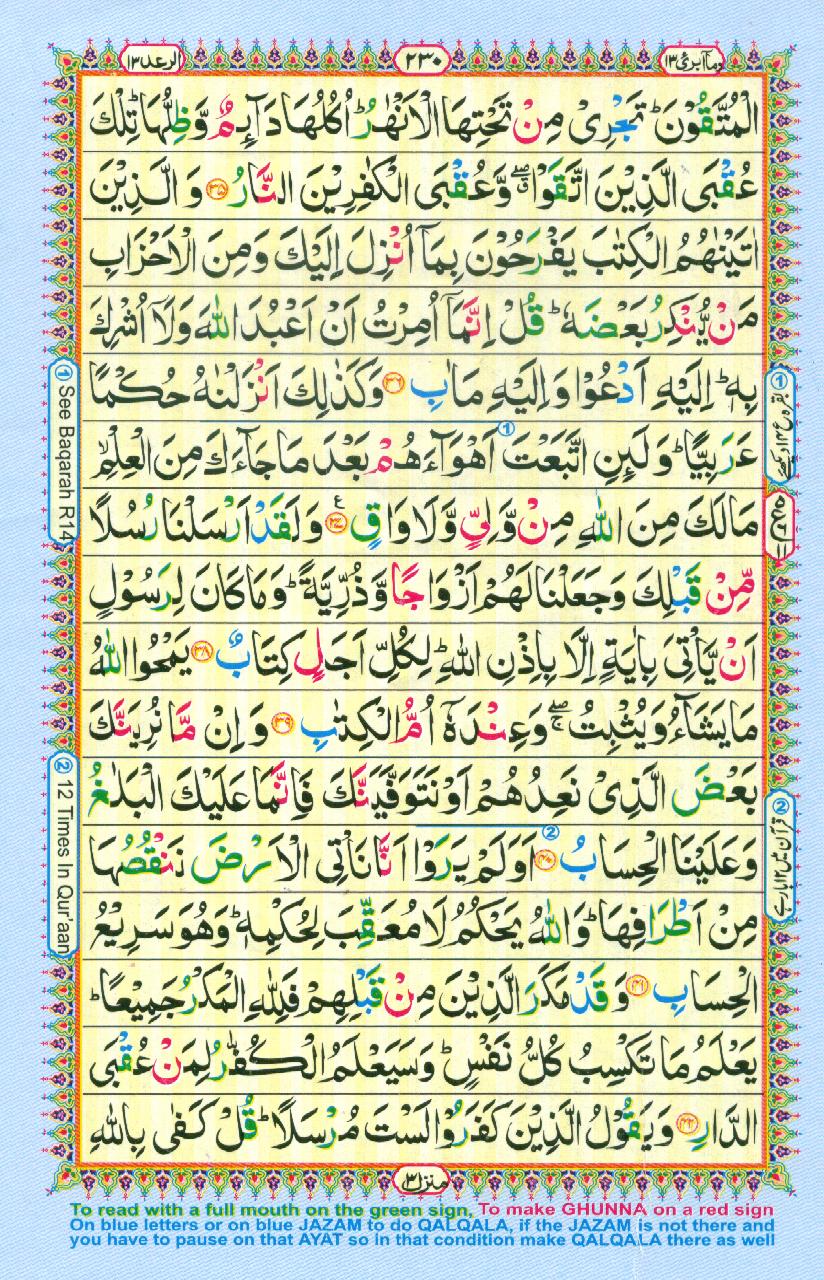 وما ابرئ ١٣
٢٣٠
الرعد ١٣
الْمُتَّقُوْنَ ؕ تَجْرِیْ مِنْ تَحْتِهَا الْاَنْهٰرُ ؕ اُكُلُهَا دَآىِٕمٌ وَّظِلُّهَا ؕ تِلْكَ
عُقْبَی الَّذِیْنَ اتَّقَوْا ۖۗ وَّعُقْبَی الْكٰفِرِیْنَ النَّارُ ۝۳۵ وَالَّذِیْنَ
اٰتَیْنٰهُمُ الْكِتٰبَ یَفْرَحُوْنَ بِمَاۤ اُنْزِلَ اِلَیْكَ وَمِنَ الْاَحْزَابِ
مَنْ یُّنْكِرُ بَعْضَهٗ ؕ قُلْ اِنَّمَاۤ اُمِرْتُ اَنْ اَعْبُدَ اللّٰهَ وَلَاۤ اُشْرِكَ
بِهٖ ؕ اِلَیْهِ اَدْعُوْا وَاِلَیْهِ مَاٰبِ ۝۳۶ وَكَذٰلِكَ اَنْزَلْنٰهُ حُكْمًا
عَرَبِیًّا ؕ وَلَىِٕنِ اتَّبَعْتَ ① اَهْوَآءَهُمْ بَعْدَ مَا جَآءَكَ مِنَ الْعِلْمِ ۙ
مَا لَكَ مِنَ اللّٰهِ مِنْ وَّلِیٍّ وَّلَا وَاقٍ ۝۳۷ ع وَلَقَدْ اَرْسَلْنَا رُسُلًا
مِّنْ قَبْلِكَ وَجَعَلْنَا لَهُمْ اَزْوَاجًا وَّذُرِّیَّةً ؕ وَمَا كَانَ لِرَسُوْلٍ
اَنْ یَّاْتِیَ بِاٰیَةٍ اِلَّا بِاِذْنِ اللّٰهِ ؕ لِكُلِّ اَجَلٍ كِتَابٌ ۝۳۸ یَمْحُوا اللّٰهُ
مَا یَشَآءُ وَیُثْبِتُ ۖۚ وَعِنْدَهٗۤ اُمُّ الْكِتٰبِ ۝۳۹ وَاِنْ مَّا نُرِیَنَّكَ
بَعْضَ الَّذِیْ نَعِدُهُمْ اَوْ نَتَوَفَّیَنَّكَ فَاِنَّمَا عَلَیْكَ الْبَلٰغُ
وَعَلَیْنَا الْحِسَابُ ۝۴۰ ② اَوَلَمْ یَرَوْا اَنَّا نَاْتِی الْاَرْضَ نَنْقُصُهَا
مِنْ اَطْرَافِهَا ؕ وَاللّٰهُ یَحْكُمُ لَا مُعَقِّبَ لِحُكْمِهٖ ؕ وَهُوَ سَرِیْعُ
الْحِسَابِ ۝۴۱ وَقَدْ مَكَرَ الَّذِیْنَ مِنْ قَبْلِهِمْ فَلِلّٰهِ الْمَكْرُ جَمِیْعًا ؕ
یَعْلَمُ مَا تَكْسِبُ كُلُّ نَفْسٍ ؕ وَسَیَعْلَمُ الْكُفّٰرُ لِمَنْ عُقْبَی
الدَّارِ ۝۴۲ وَیَقُوْلُ الَّذِیْنَ كَفَرُوْا لَسْتَ مُرْسَلًا ؕ قُلْ كَفٰی بِاللّٰهِ
① See Baqarah R14
② 12 Times In Qur'aan
منزل ٣
To read with a full mouth on the green sign, To make GHUNNA on a red sign
On blue letters or on blue JAZAM to do QALQALA, if the JAZAM is not there and
you have to pause on that AYAT so in that condition make QALQALA there as well